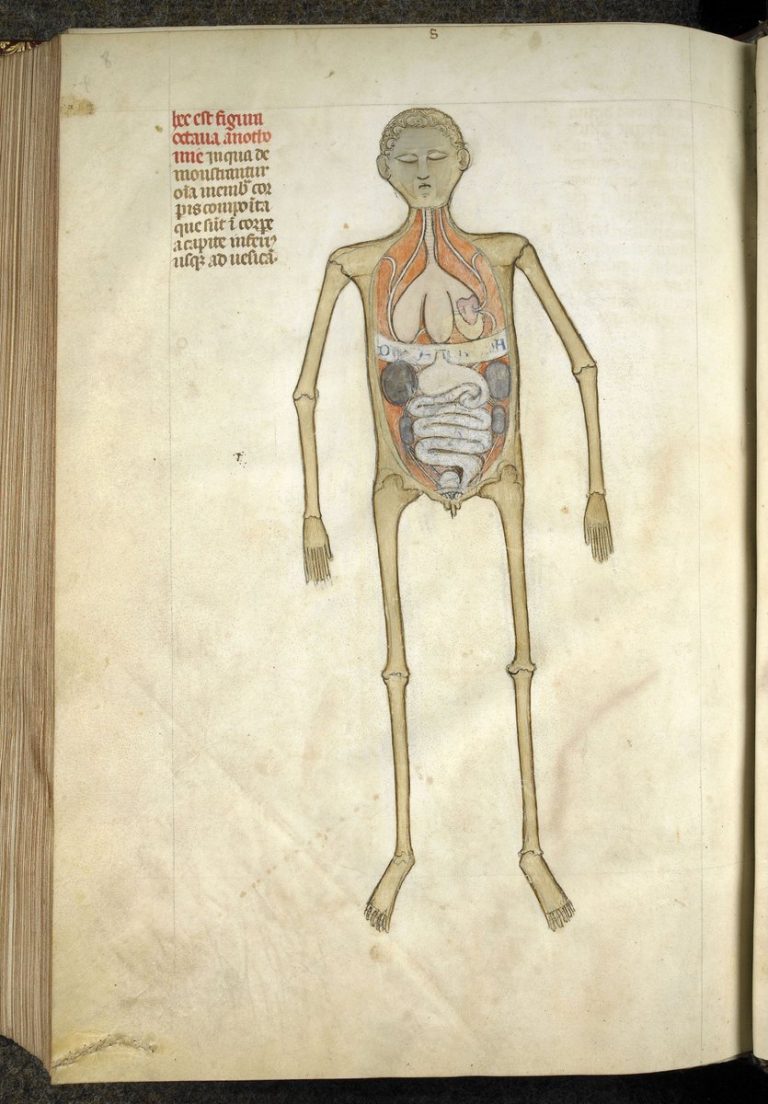 8
hec est figura
octaua anotho
mie in qua de
monstrantur
oīa memb cor
pis compoīta
que sūt ī corpe
a capite inferiꝰ
usqꝫ ad uesicā.